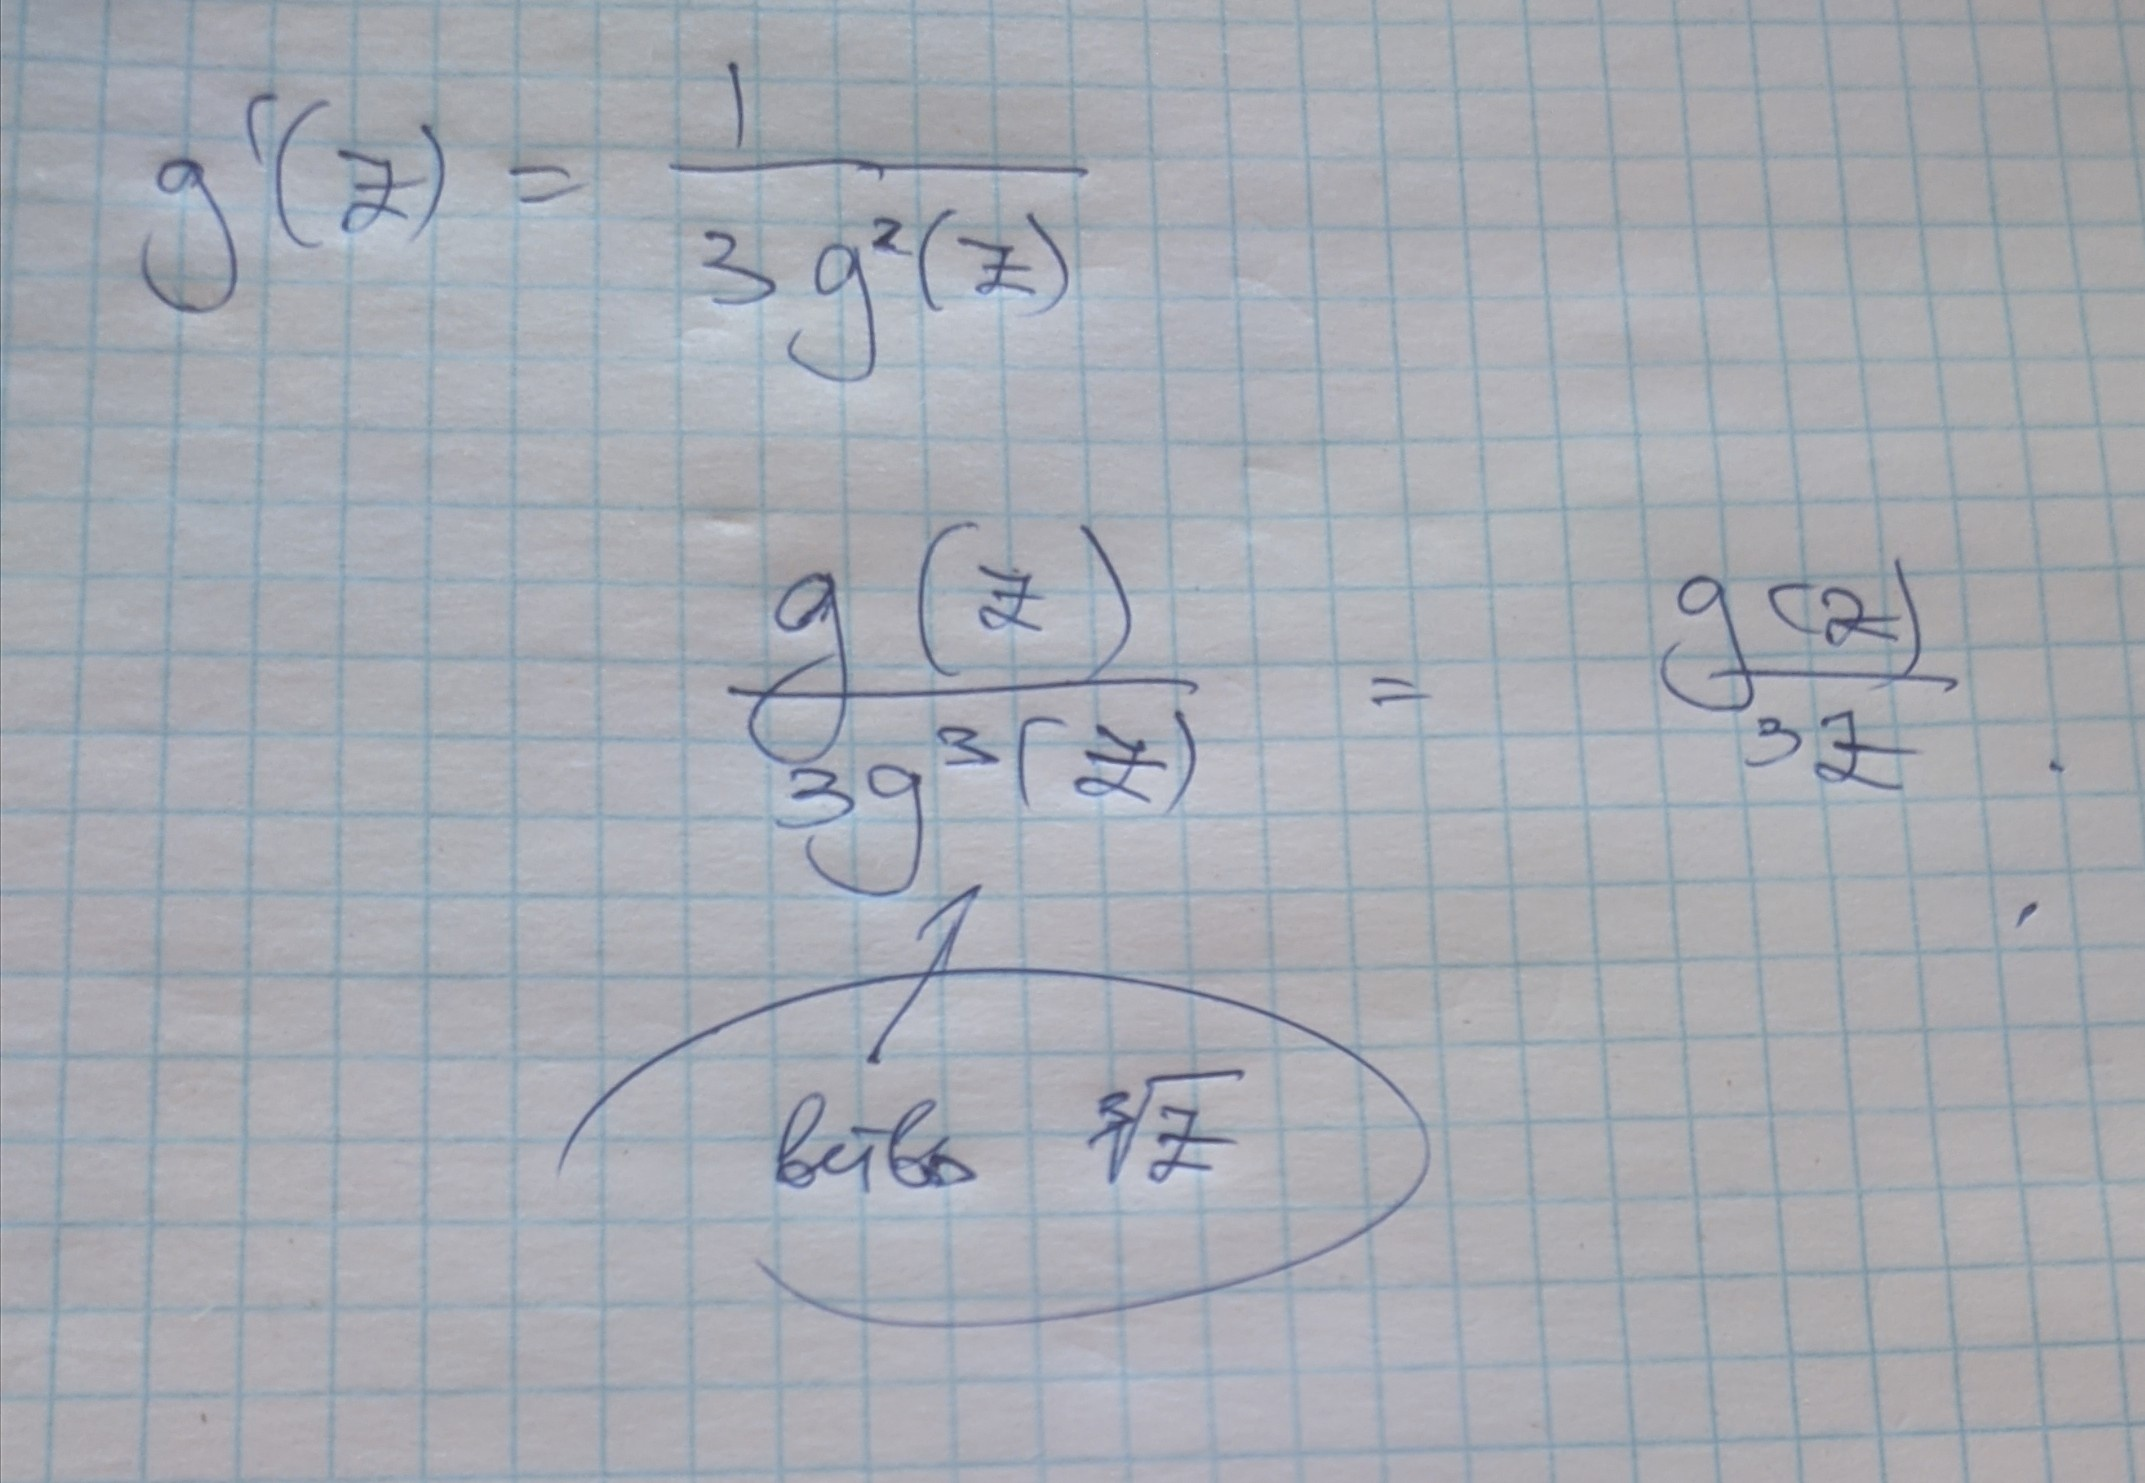 g'(z) = 1 / 3g²(z)
g(z) / 3g³(z) = g(z) / 3z .
ветвь ∛z